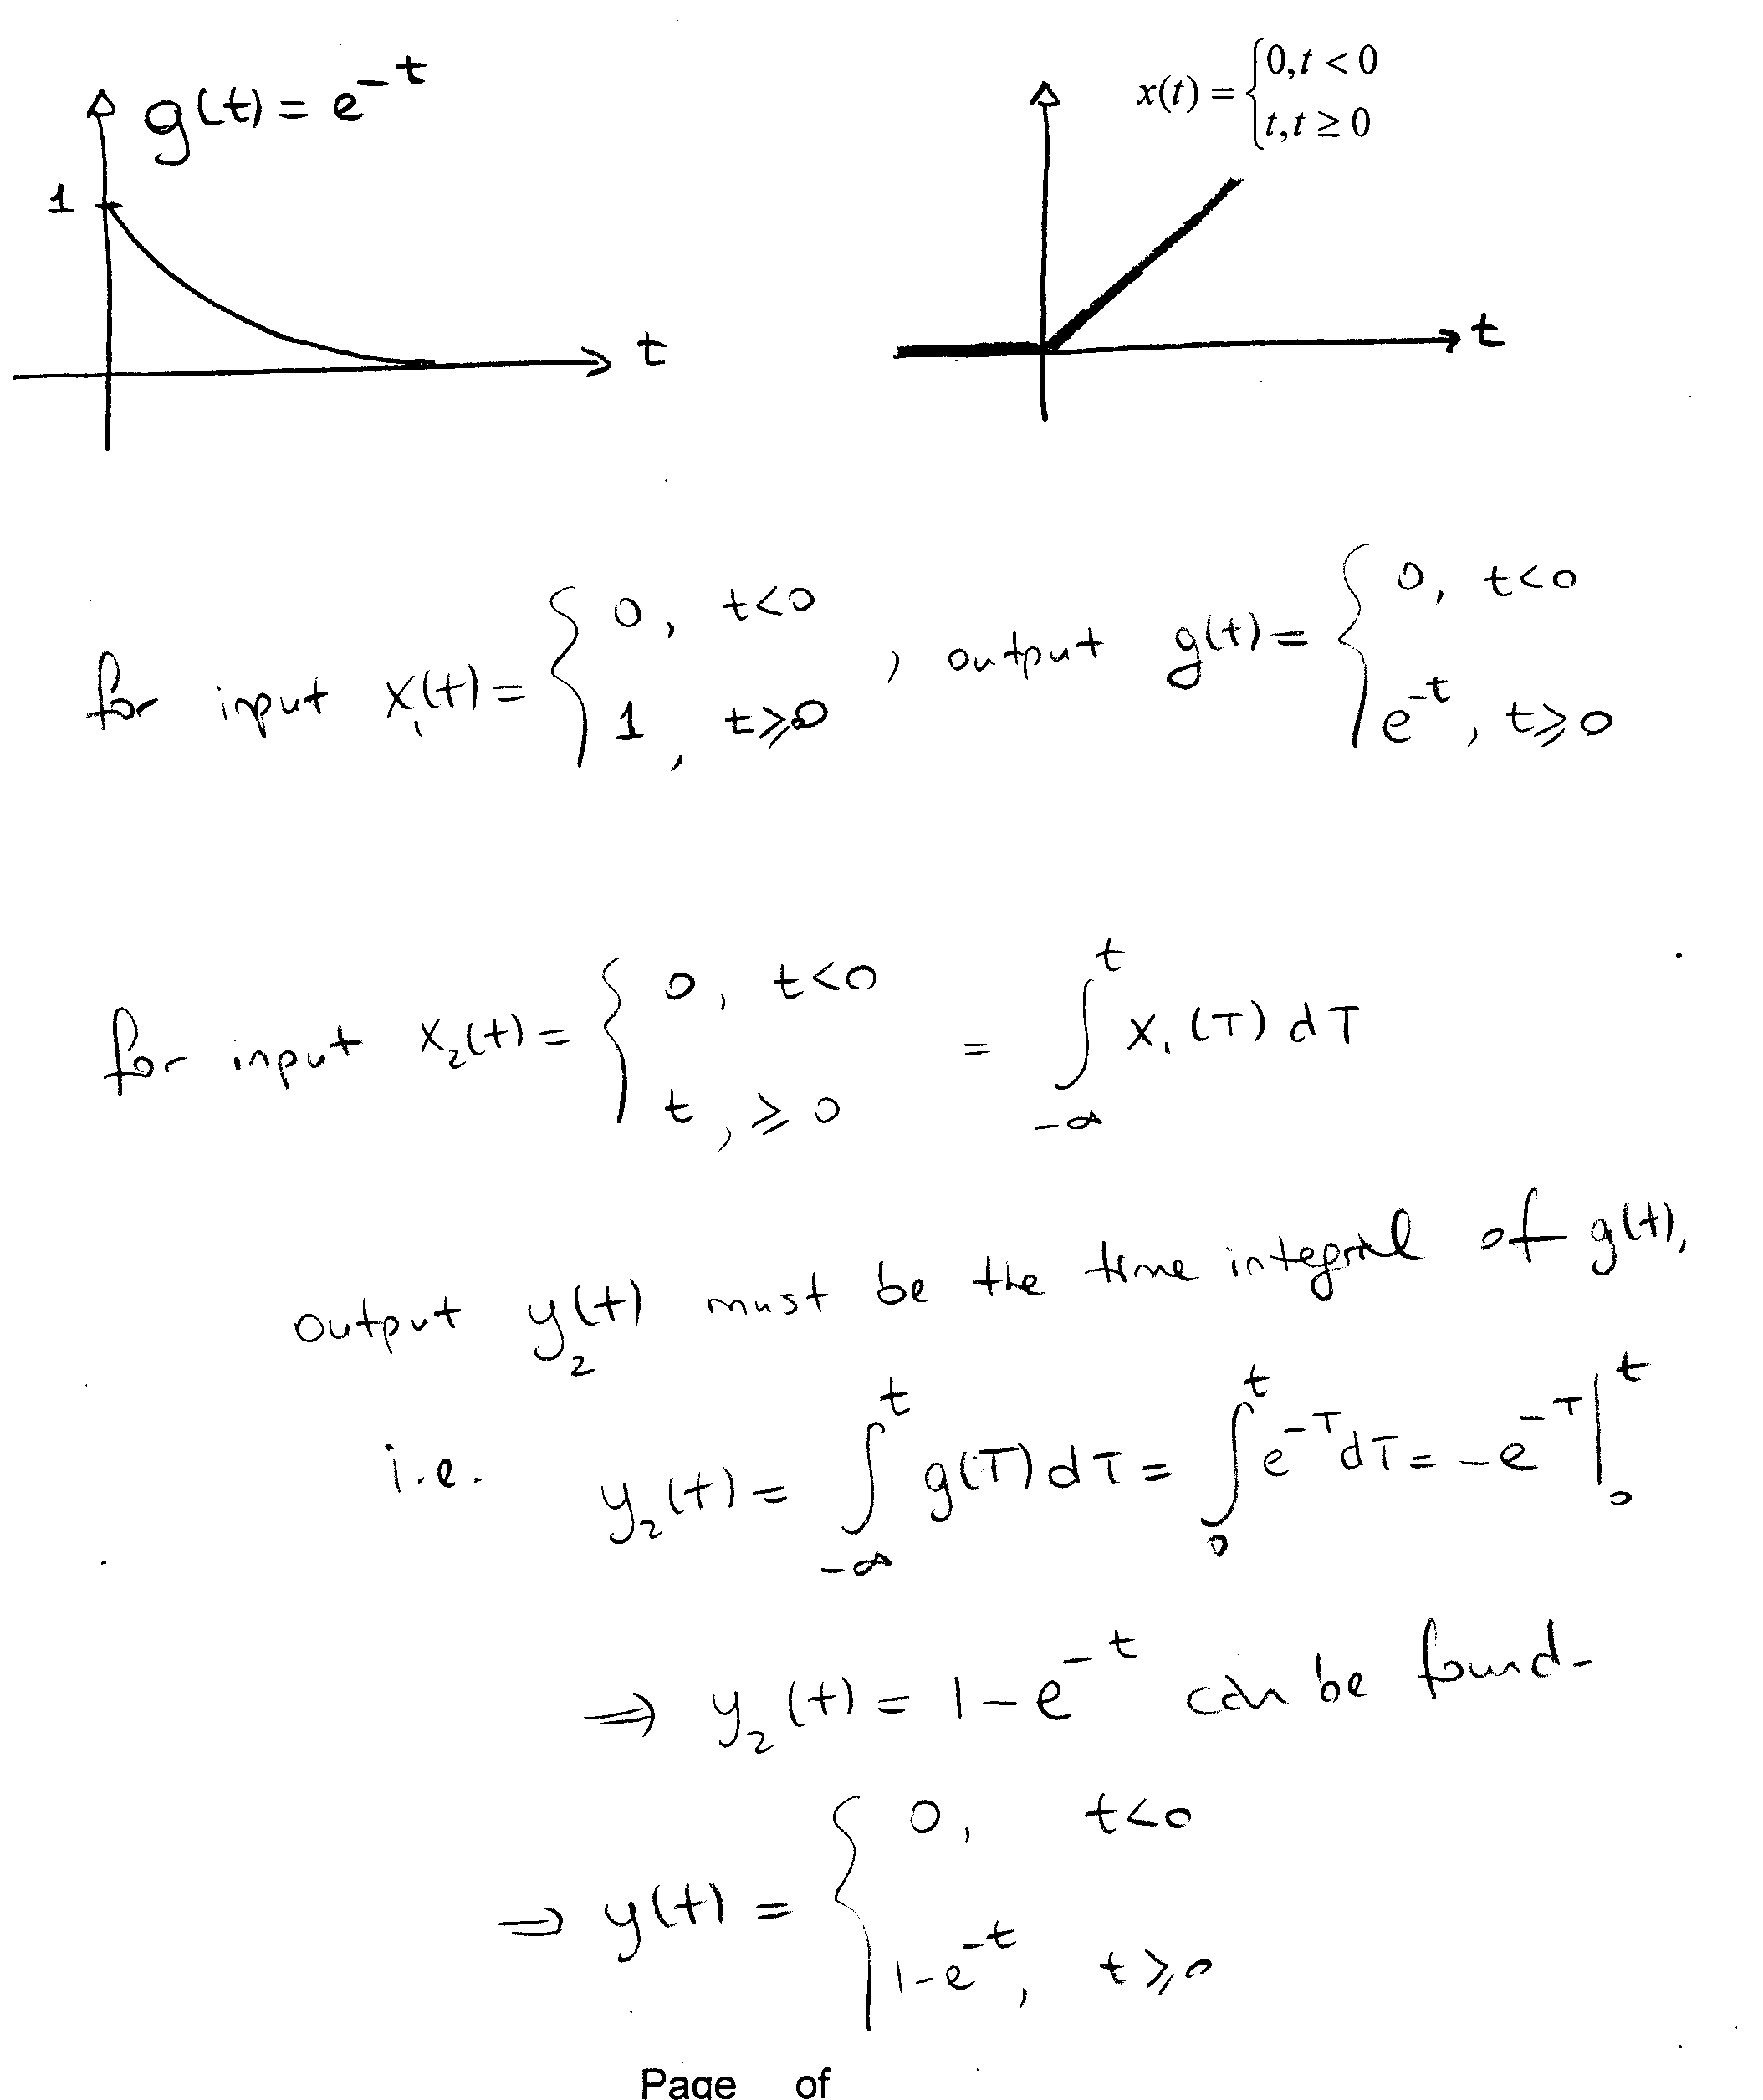 g(t) = e^-t
x(t) = { 0, t < 0
t, t ≥ 0
1
t
t
for input x₁(t) = { 0, t<0
1, t⩾0
, output g(t) = { 0, t<0
e^-t, t⩾0
for input x₂(t) = { 0, t<0
t, ⩾0
= ∫_-∞^t x₁(T) dT
output y₂(t) must be the time integral of g(t),
i.e. y₂(t) = ∫_-∞^t g(T) dT = ∫_0^t e^-T dT = -e^-T |_0^t
⇒ y₂(t) = 1-e^-t can be found-
⇒ y(t) = { 0, t<0
1-e^-t, t⩾0
Page of